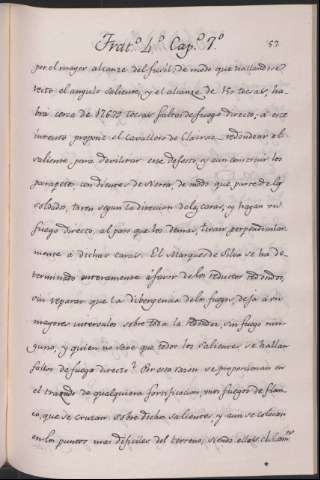 Trat.º 4.º Cap.º 7.º
57
por el mayor alcanze del fusil, de modo que hallandose
recto el angulo saliente, y el alcanze de 150 toesas, ha
brá cerca de 17677 toesas faltas de fuego directo, á este
intento propone el Cavallero de Clairac redondear el
saliente para devilitar este defecto, y aun construir los
parapetos con dientes de sierra de modo que parte de los
soldados, tiren segun la direccion de las caras, y hagan su
fuego directo, al paso que los demas, tiran perpendicular
mente a dichas caras. El Marques de Silva se ha de
terminado enteramente á favor de los reductos redondos,
sin reparar que la dibergencia de los fuegos, deja á sus
mayores intervalos sobre toda la redondez, sin fuego nin
guno, y quien no save que todos los salientes se hallan
faltos de fuego directo? Por esta razon se proporcionan en
el trazado de qualquiera fortificacion, unos fuegos de flan
co, que se cruzan sobre dichos salientes, y aun se colocan
en los puntos mas dificiles del terreno; siendo ellos el